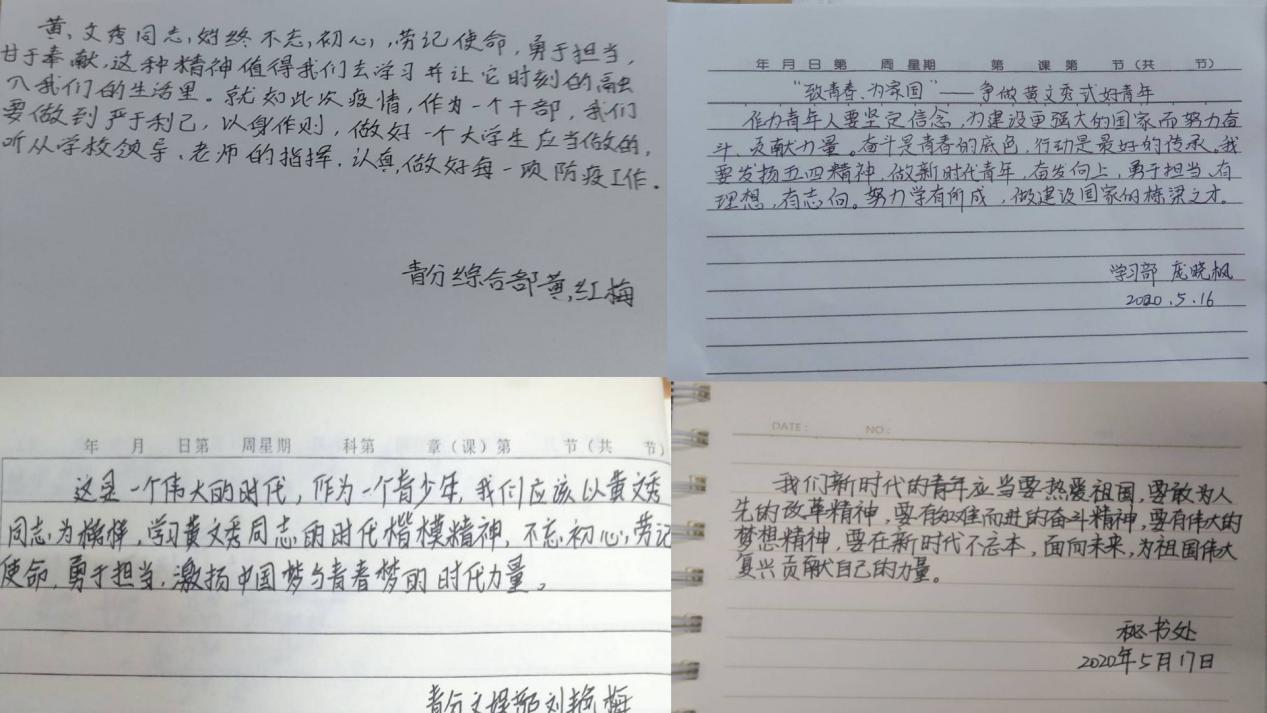 黄文秀同志,始终不忘初心,劳记使命,勇于担当,
甘于奉献,这种精神值得我们去学习并让它时刻的融
入我们的生活里。就如此次疫情,作为一个干部,我们
要做到严于利己,以身作则,做好一个大学生应当做的,
听从学校领导、老师的指挥,认真做好每一项防疫工作。
青分综合部黄红梅
年 月 日 第 周 星期 第 课 第 节(共 节)
“致青春、为家国”——争做黄文秀式好青年
作为青年人要坚定信念,为建设更强大的国家而努力奋
斗、贡献力量。奋斗是青春的底色,行动是最好的传承。我
要发扬五四精神,做新时代青年,奋发向上,勇于担当、有
理想,有志向。努力学有所成,做建设国家的栋梁之才。
学习部 庞晓枫
2020.5.16
年 月 日第 周星期 科第 章(课)第 节(共 节)
这是一个伟大的时代,作为一个青少年,我们应该以黄文秀
同志为榜样,学习黄文秀同志的时代楷模精神,不忘初心,劳记
使命,勇于担当,激扬中国梦与青春梦的时代力量。
青分 刘艳梅
DATE: NO:
我们新时代的青年应当要热爱祖国,要敢为人
先的改革精神,要有知难而进的奋斗精神,要有伟大的
梦想精神,要在新时代不忘本,面向未来,为祖国伟大
复兴贡献自己的力量。
秘书处
2020年5月17日